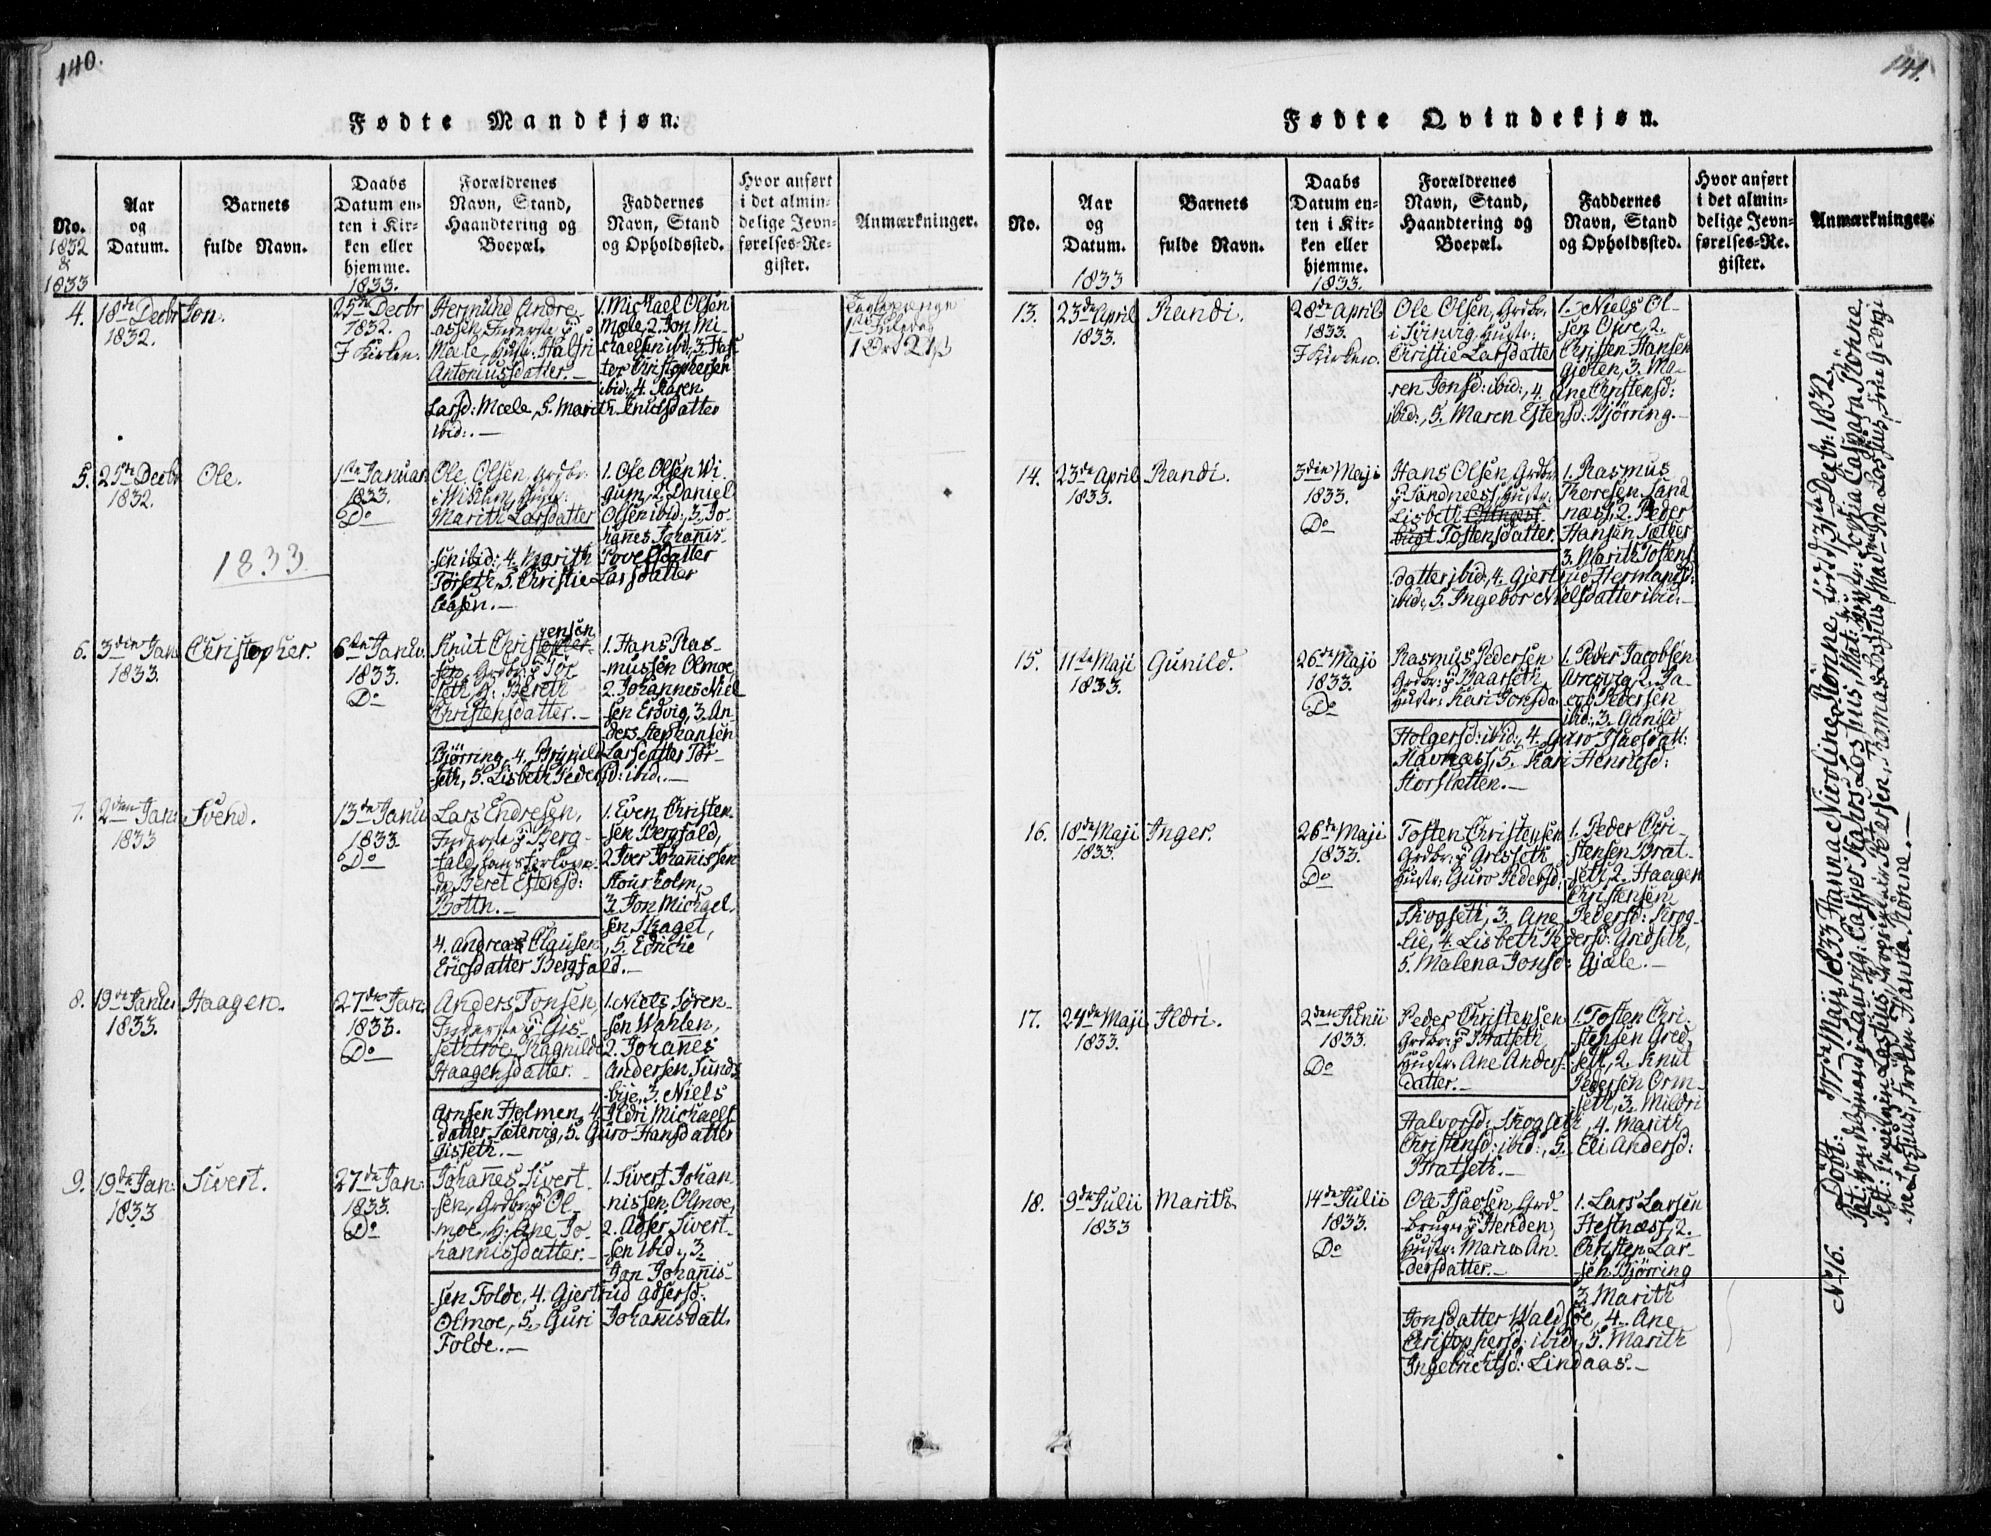 140.
Fødte Mandkjøn.
No.
1832
&
1833
Aar
og
Datum.
Barnets
fulde Navn.
Daabs
Datum en-
ten i Kir-
ken eller
hjemme.
1833.
Forældrenes
Navn, Stand,
Haandtering og
Boepæl.
Faddernes
Navn, Stand
og Opholdssted.
Hvor anført
i det almin-
delige Jevn-
førelses-Re-
gister.
Anmærkninger.
4.
18de Decbr
1832.
Jon.
25de Decbr
1832.
I Kirken.
Hermund Andre
assen, Inderste i
Mæle, Hustr: Halfri
Antoniusdatter.-
1. Michael Olsen
Mæle, 2. Jon Mi-
chaelsen ibid:, 3. Haf-
tor Christophersen
ibid:, 4. Karen
Larsd: Mæle, 5. Marith Knudsdatter
ibid:.-
1 Ort
5.
25de Decbr
1832.
Ole.
1ste Januar
1833.
Do
Ole Olsen, Grdbr.
i Wikum, Hustr:
Marith Larsdatter
1. Ole Olsen Wi-
gum, 2. Daniel
Olsen ibid:, 3. Jo-
hannes Johanis-
sen ibid:, 4. Marith Povelsdatter
Torseth, 5. Christie Larsdatter
Aasen.-
1833.
6.
3die Jan
1833.
Christopher.
6te Janu.
1833.
Do
Knut Christensen
Grdbr: i Tor
seth, H: Bereth
Christensdatter.-
1. Hans Ras-
mussen Olmoe,
2. Johannes Niel
sen Erdvig, 3. An-
ders Stephansen
Bjørring, 4. Brynild Larsdatter Tor-
seth, 5. Lisbeth Pedersd: ibid:.-
7.
2den Jan:
1833
Svend.
13de Janu
1833.
Do
Lars Endresen,
Inderste i Berg-
fald, hans Forlove-
de Beret Estensd:
Bottn.-
1. Even Christen-
sen Bergfald,
2. Iver Johannissen
Kourholm,
3. Jon Michael
sen Skaget,
4. Andreas Clausen, 5. Edicke
Ericsdatter Bergfald.-
8.
19de Janu
1833.
Haagen.
27de Jan:
1833.
Do
Anders Jonsen,
Inderste i Gis-
sethroe, Ragnilde
Haagensdatter.-
1. Niels Søren-
sen Wahlen,
2. Johannes
Andersen Sunds
bye, 3. Niels
Arnsen Holmen, 4. Ildri Michaels
datter Sætervig, 5. Guro Hansdatter
Gisseth.-
9.
19de Jan:
1833
Sivert.
27de Jan:
1833.
Do
Johannes Sivert-
sen, Grdbr: i Ol-
moe, H: Ane Jo-
hannisdatter.-
1. Sivert Johan
nissen Olmoe,
2. Adser Sivert-
sen ibid:, 3.
Jon Johannis-
sen Folde, 4. Gjertrud Adsersd:
Olmoe, 5. Guri Johannisdatt.
Folde.-
141.
Fødte Qvindekjøn.
No.
Aar
og
Datum.
1833
Barnets
fulde Navn.
Daabs
Datum en-
ten i Kir-
ken eller
hjemme.
1833.
Forældrenes
Navn, Stand,
Haandtering og
Boepæl.
Faddernes
Navn, Stand
og Opholdssted.
Hvor anført
i det almin-
delige Jevn-
førelses-Re-
gister.
Anmærkninger.
13.
23de April
1833.
Randi.
28de April
1833.
I Kirken.
Ole Olsen, Grdbr:
i Svinvig, Hustr:
Christie Larsdatter
1. Niels Ol-
sen Ofre, 2.
Christen Hansen
Gjøten, 3. Ma-
ren Jonsd: ibid:, 4. Ane Christensd:
ibid:, 5. Maren Estensd: Bjørring.-
14.
23de April
1833.
Randi.
3die Maji
1833.
Do
Hans Olsen, Grdbr.
i Sandnæss, Hustr:
Lisbeth
Tostensdatter.
1. Rasmus
Thoresen Sand
næss, 2. Peder
Hansen Sæther
3. Marith Tostens
datter ibid:, 4. Gjertrud Hermansd:
ibid:, 5. Ingebor Nielsdatter ibid:.-
15.
11te Maji
1833.
Gunild.
26de Maji
1833.
Do
Rasmus Pedersen
Grdbr: i Baarseth,
Hustr: Kari Jonsda
1. Peder Jacobsen
Aresvig, 2. Ja-
cob Pedersen
ibid:, 3. Gunild
Holgersd: ibid:, 4. Guro Isacsdatt:
Havnæss, 5. Kari Henrichsd:
Storsletten.-
16.
18de Maji
1833.
Inger.
26de Maji
1833.
Do
Tosten Christensen
Grdbr: i Gresseth
Hustr: Guro Pedersd:
1. Peder Chri-
stensen Brat-
seth, 2. Haagen
Christensen
Skogseth, 3. Ane Pedersd: Krog-
lie, 4. Lisbeth Pedersd: Gredseth,
5. Malena Jonsd: Gjæle.-
17.
24de Maji
1833.
Ildri.
2den Junii
1833.
Do
Peder Christensen
Grdbr: i Bratseth,
Hustr: Ane Anders-
datter.-
1. Tosten Chri-
stensen Gred-
seth, 2. Knut
Pedersen Orm-
seth, 3. Mildri
Halvorsd: Skogseth, 4. Marith
Christensd: ibid:, 5. Eli Andersd:
Bratseth.-
18.
9de Julii
1833
Marith.
14de Julii
1833.
Do
Ole Isacsen, Grd-
bruger i Henden,
Hustr: Maria An-
dersdatter.-
1. Lars Larsen
Hestnæss, 2.
Christen Lar-
sen Bjørring
3. Marith
Jonsdatter Waldsøe, 4. Ane
Christophersd: ibid:, 5. Marith
Ingebrichtsd: Lindaas.-
No 16. Døbt: 17de Maji 1833 Hanna Nicoline Rönne, födt d: 31te Decbr: 1832.